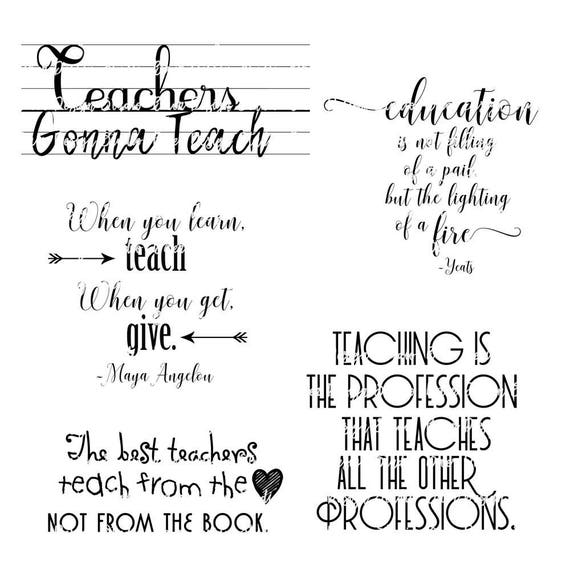 Teachers
Gonna Teach
education
is not filling
of a pail,
but the lighting
of a fire
-Yeats
When you learn,
teach
When you get,
give.
-Maya Angelou
TEACHING IS
THE PROFESSION
THAT TEACHES
ALL THE OTHER
PROFESSIONS.
The best teachers
teach from the
NOT FROM THE BOOK.